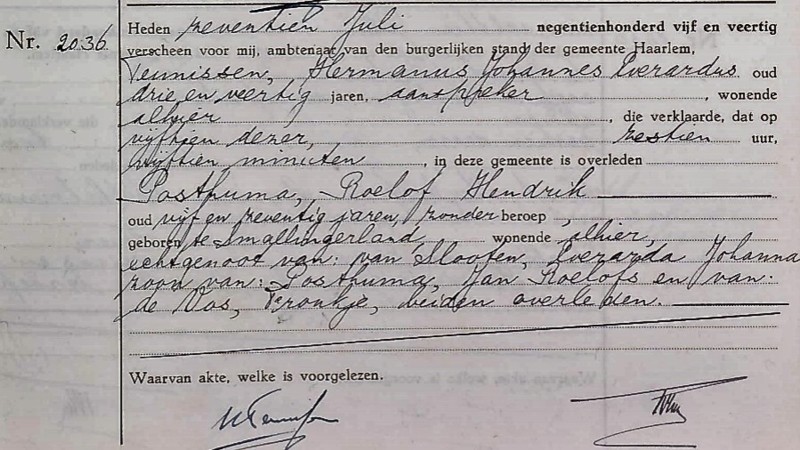 Nr. 2036
Heden zeventien Juli negentienhonderd vijf en veertig
verscheen voor mij, ambtenaar van den burgerlijken stand der gemeente Haarlem,
Teunissen, Hermanus Johannes Everardus oud
drie en veertig jaren, aanspreker, wonende
alhier, die verklaarde, dat op
vijftien dezer, zestien uur,
vijftien minuten, in deze gemeente is overleden
Posthuma, Roelof Hendrik
oud vijf en zeventig jaren, zonder beroep,
geboren te Smallingerland wonende alhier,
echtgenoot van: van Slooten, Everarda Johanna
zoon van: Posthuma, Jan Roelofs en van:
de Vos, Fronkje, beiden overleden.
Waarvan akte, welke is voorgelezen.